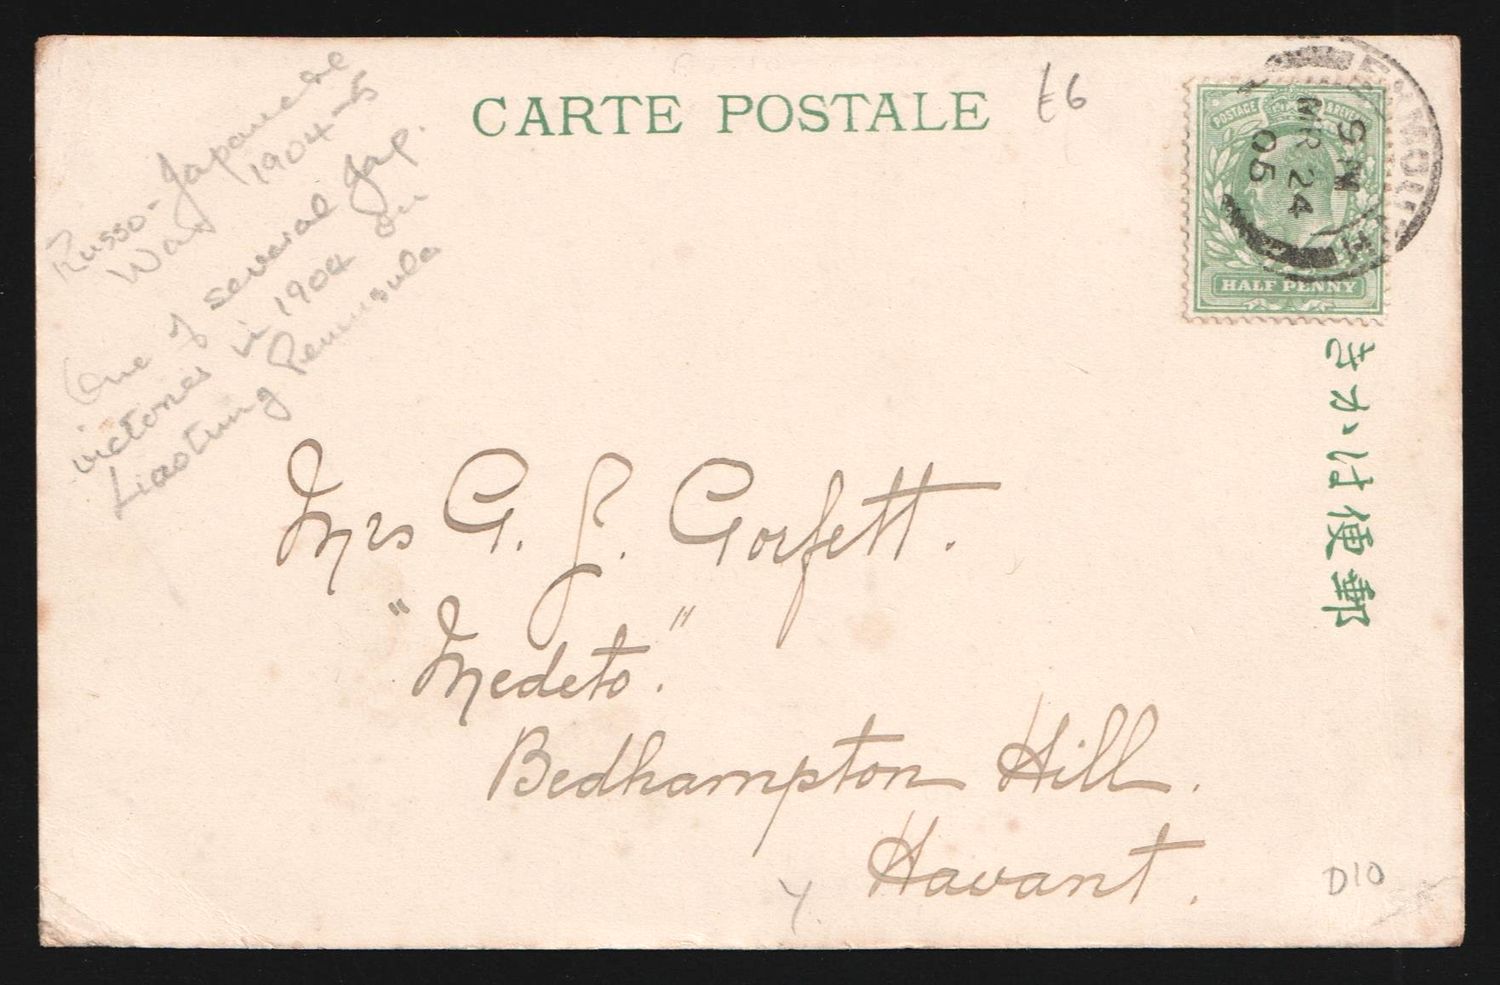 CARTE POSTALE
£6
Russo-Japanese
War 1904-5
One of several Jap.
victories in 1904 on
Liaotung Peninsula
POSTAGE & REVENUE
HALF PENNY
9 PM
MR 24
05
きかは便郵
Mrs G. J. Corfett.
"Medeto."
Bedhampton Hill.
Havant.
D10